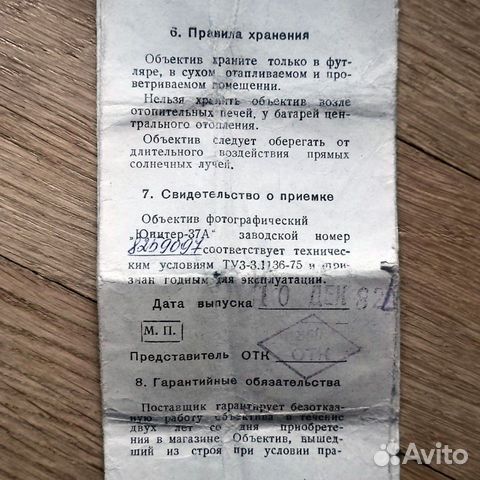 6. Правила хранения
Объектив храните только в фут-
ляре, в сухом отапливаемом и про-
ветриваемом помещении.
Нельзя хранить объектив возле
отопительных печей, у батарей цен-
трального отопления.
Объектив следует оберегать от
длительного воздействия прямых
солнечных лучей.
7. Свидетельство о приемке
Объектив фотографический
„Юпитер-37А" заводской номер
8259097 соответствует техничес-
ким условиям ТУ3-3.1136-75 и при-
знан годным для эксплуатации.
Дата выпуска 10 ДЕК 82
М. П.
Представитель ОТК ОТК
8. Гарантийные обязательства
Поставщик гарантирует безотказ-
ную работу объектива в течение
двух лет со дня приобрете-
ния в магазине. Объектив, вышед-
ший из строя при условии пра-
Avito